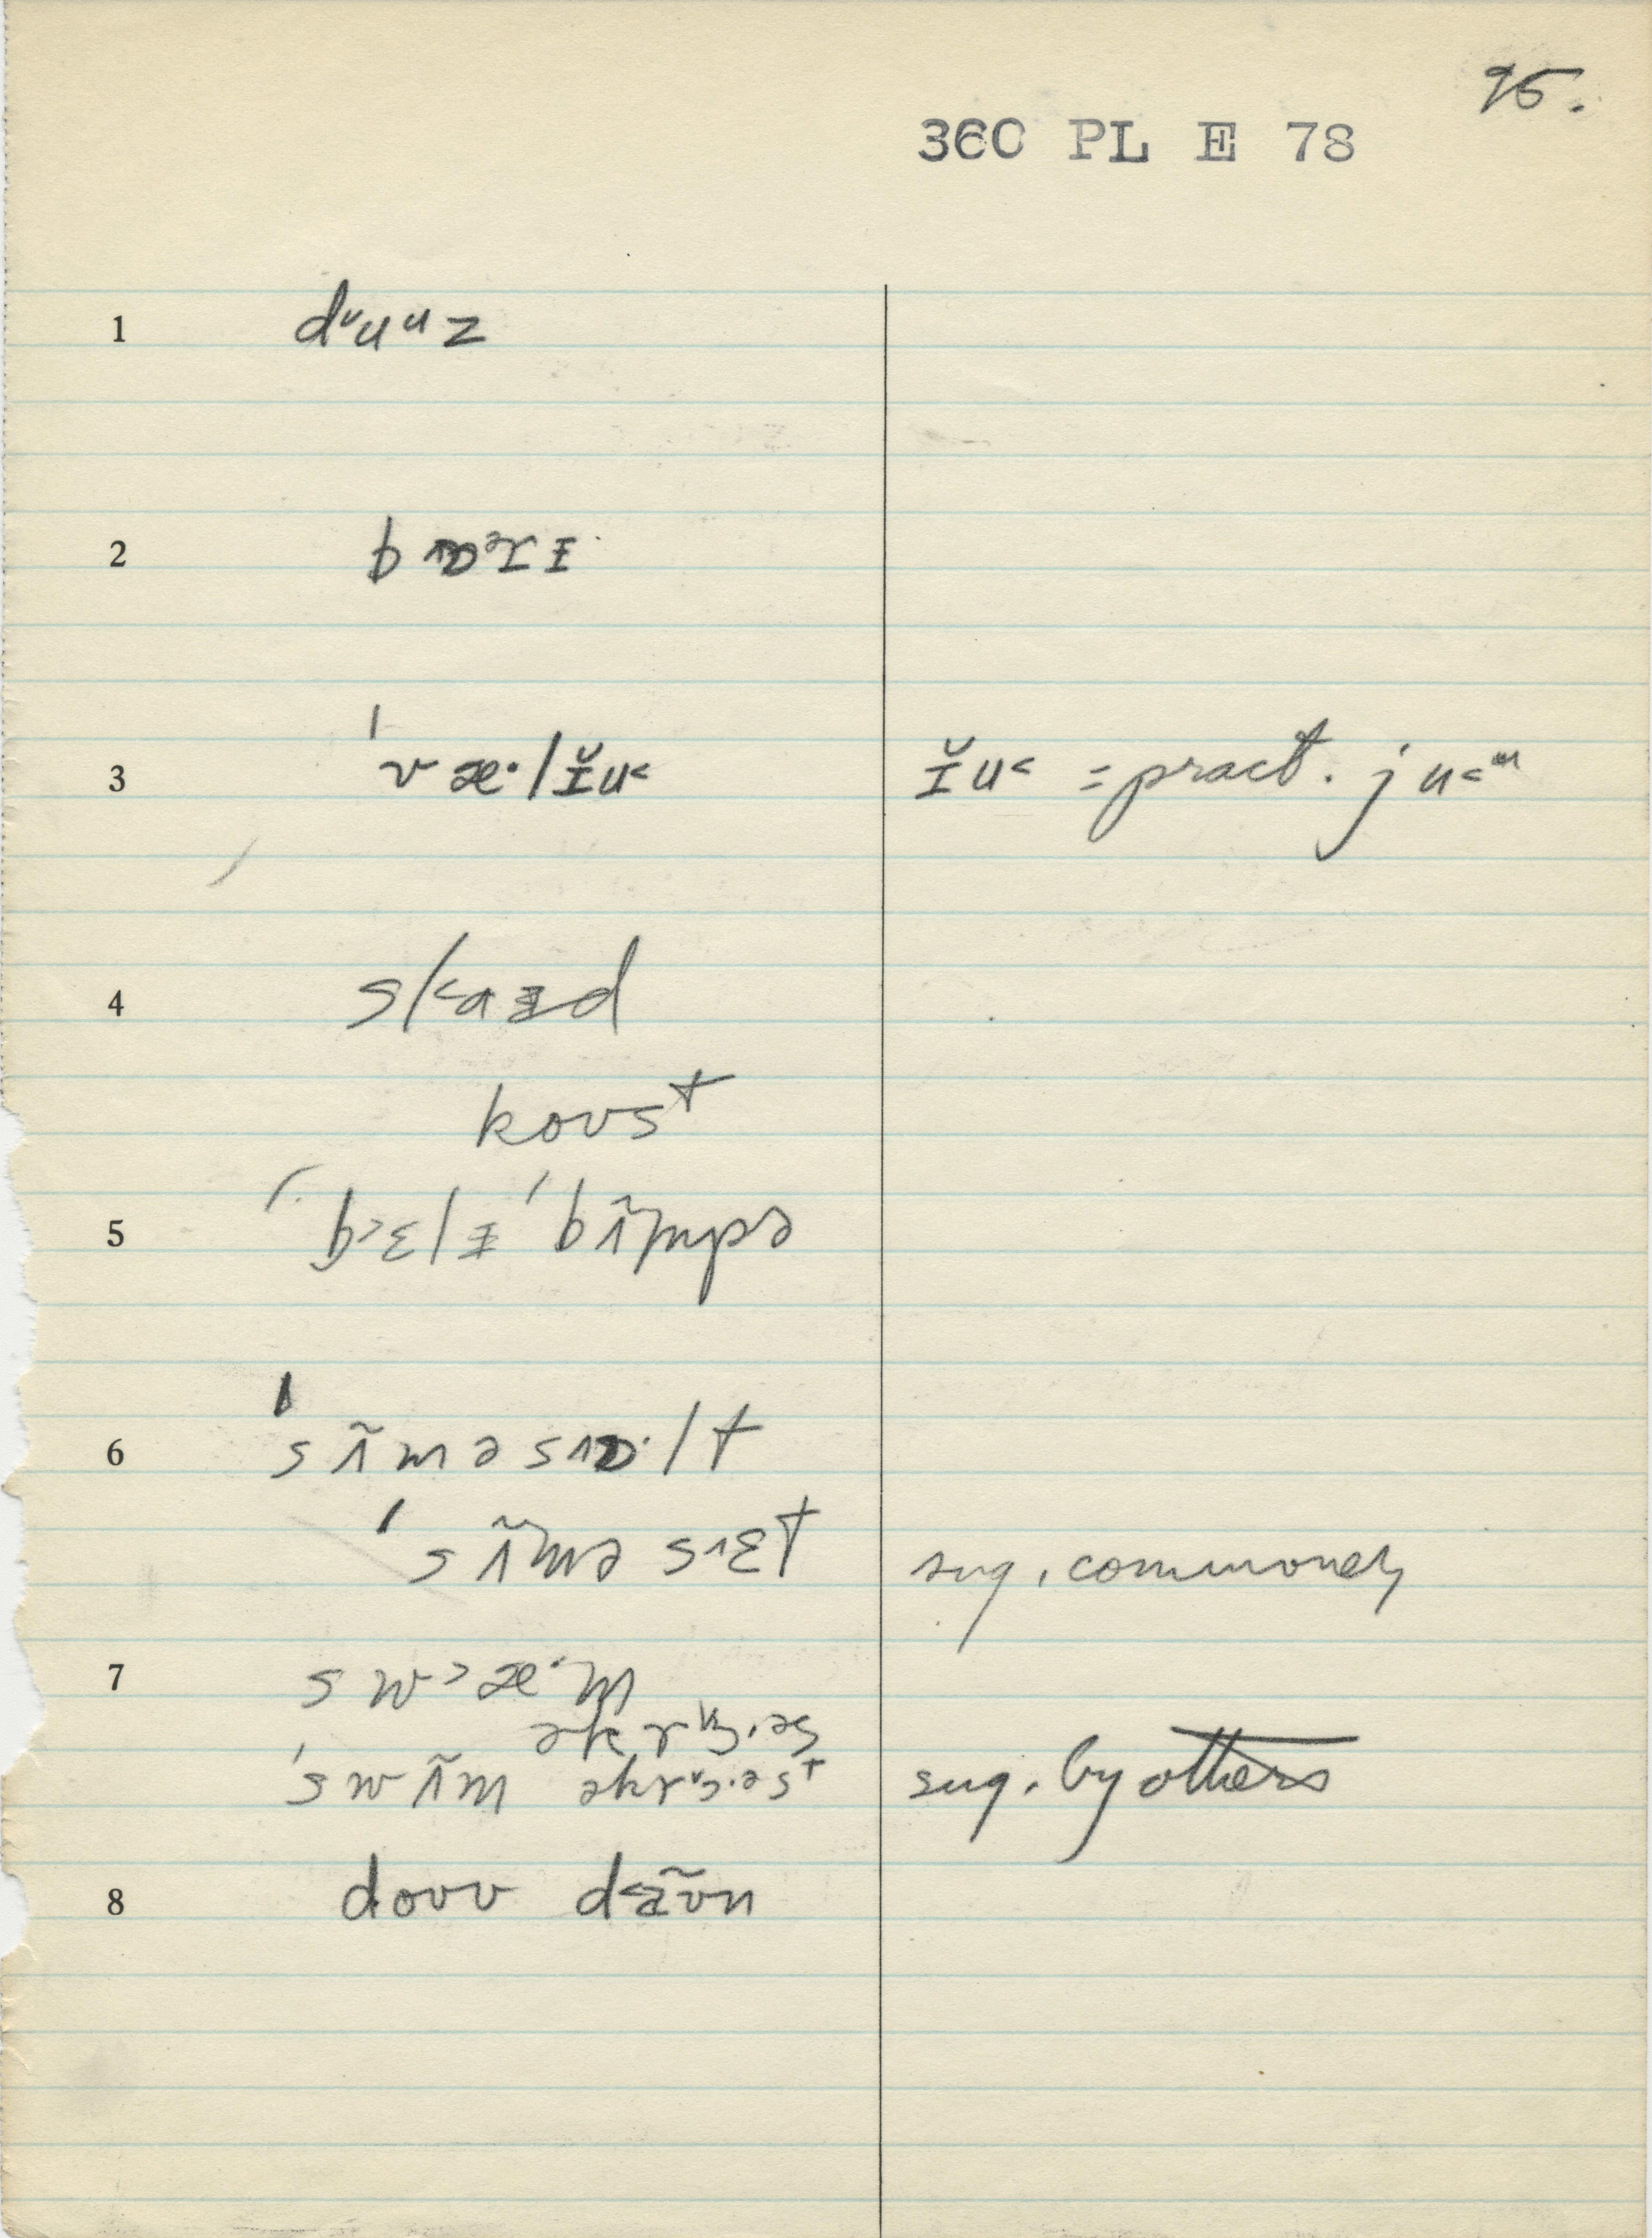 95.
360 PL E 78
1 dᵛuᵘz
2 bɒᵊrɪ
3 ˈvæ·lɪ̆u˂ ɪ̆u˂ = pract. ju˂
4 skaɪd
koʊst
5 ˈb˃ɛlɪ ˈbʌ̃mpə
6 ˈsʌ̃məsɒ·lt
ˈsʌ̃məsɛt sug. commonly
7 sw˃æ·m
əkrɔs
ˈswʌ̃m əkrɔ·əst sug. by others
8 doʊv daʊ̃n